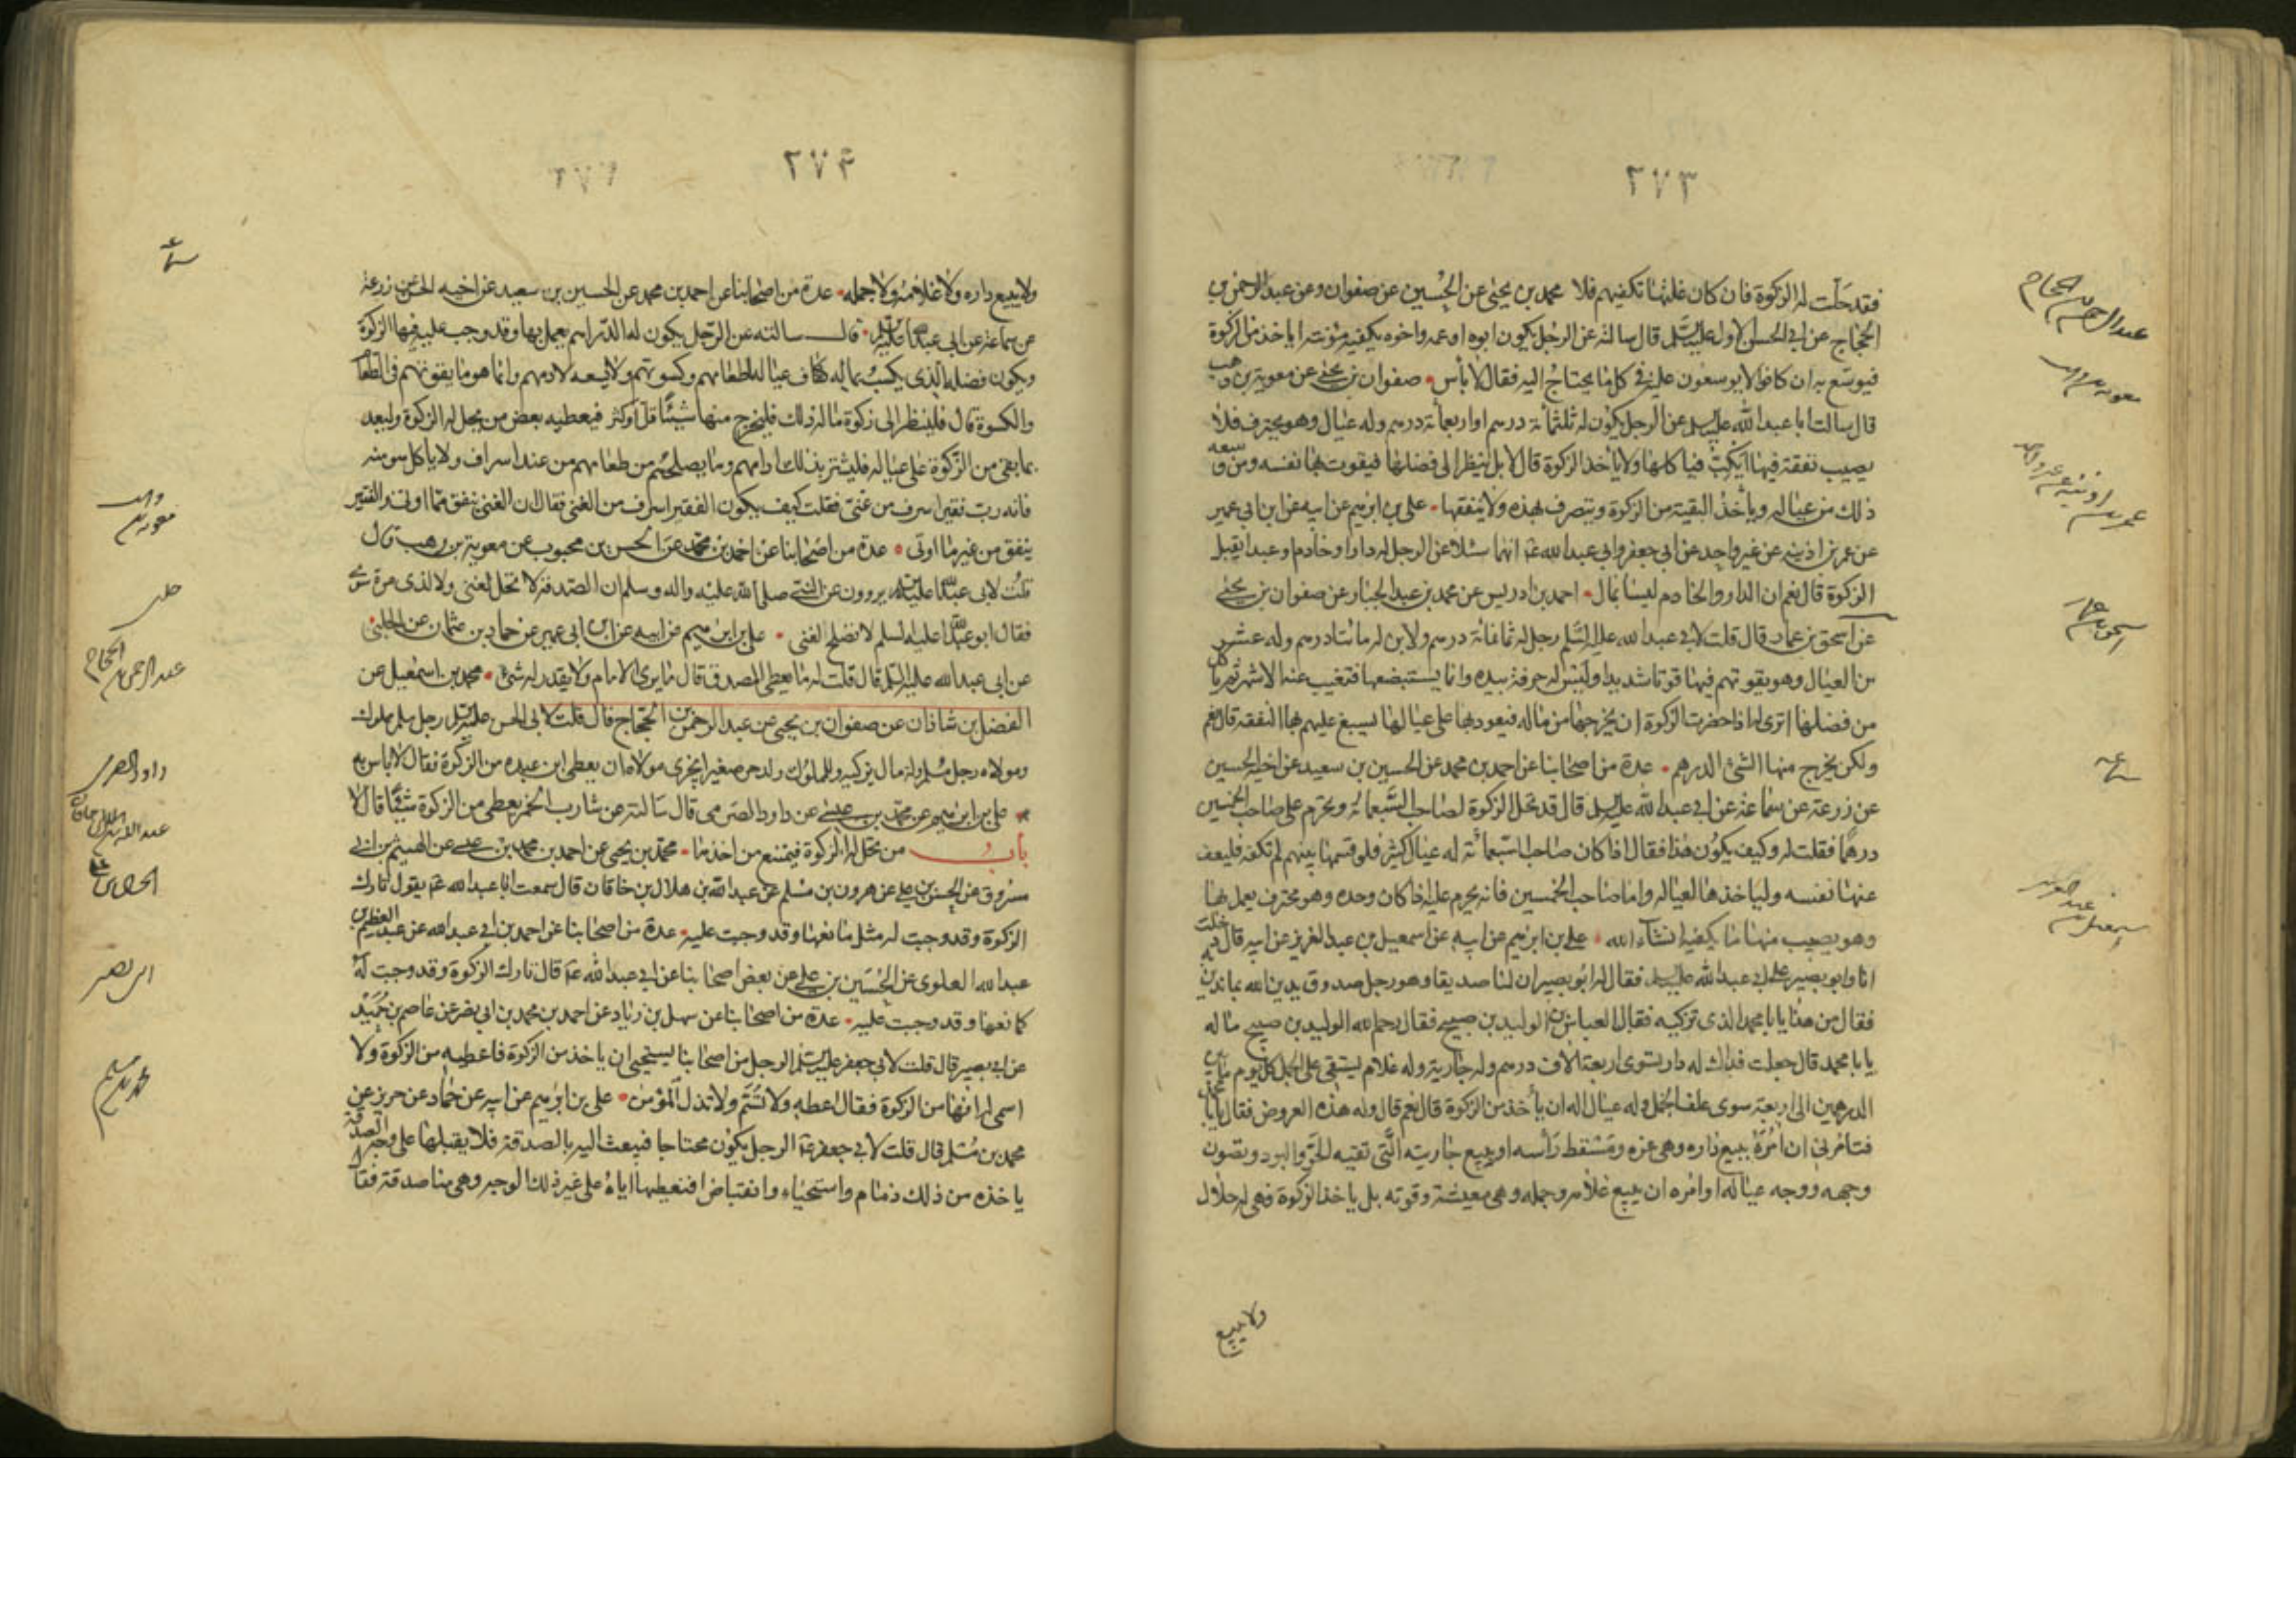 ٢٧٣
فقد حلت له الزكوة فان كان غلتها تكفيهم فلا محمد بن يحيى عن الحسين عن صفوان وعن عبد الرحمن بن
الحجاج عن ابى الحسن الاول عليه السلم قال سالته عن الرجل يكون ابوه او عمه واخوه يكفيه مؤنته اياخذ من الزكوة
فيوسع به ان كانوا لا يوسعون عليه فى كل ما يحتاج اليه فقال لا بأس صفوان بن يحيى عن معوية بن وهب
قال سالت ابا عبد الله عليه السلم عن الرجل يكون له ثلثمائة درهم او اربعمائة درهم وله عيال وهو يحترف فلا
يصيب نفقته فيها ايكب فياكلها ولا ياخذ الزكوة قال لا بل ينظر الى فضلها فيقوت بها نفسه ومن وسعه
ذلك من عياله وياخذ البقية من الزكوة ويتصرف بهذه ولا ينفقها علي بن ابرهيم عن ابيه عن ابن ابى عمير
عن عمر بن اذينه عن غير واحد عن ابى جعفر وابى عبد الله انهما سئلا عن الرجل له دار او خادم او عبد ايقبل
الزكوة قال نعم ان الدار والخادم ليسا بمال احمد بن ادريس عن محمد بن عبد الجبار عن صفوان بن يحيى
عن اسحق بن عمار قال قلت لابى عبد الله عليه السلم رجل له ثمانمائة درهم ولابن له مائتا درهم وله عشر
من العيال وهو يقوتهم فيها قوتا شديدا وليس له حرفة بيده وانما يستبضعها فتغيب عنه الاشهر ثم ياكل
من فضلها اترى له اذا حضرت الزكوة ان يخرجها من ماله فيعود بها على عياله يسبغ عليهم بها النفقة قال نعم
ولكن يخرج منها الشئ الدرهم عدة من اصحابنا عن احمد بن محمد عن الحسين بن سعيد عن اخيه الحسين
عن زرعة عن سماعة عن ابى عبد الله عليه السلم قال قد تحل الزكوة لصاحب السبعمائة وتحرم على صاحب الخمسين
درهما فقلت له وكيف يكون هذا فقال اذا كان صاحب السبعمائة له عيال كثير فلو قسمها بينهم لم تكفه فليعف
عنها نفسه ولياخذها لعياله واما صاحب الخمسين فانه يحرم عليه اذا كان وحده وهو محترف يعمل بها
وهو يصيب منها ما يكفيه انشاء الله علي بن ابرهيم عن ابيه عن اسمعيل بن عبد العزيز عن ابيه قال دخلت
انا وابو بصير على ابى عبد الله عليه السلم فقال له ابو بصير ان لنا صديقا وهو رجل صدوق يدين الله بما ندين
فقال من هذا يا با محمد الذى تزكيه فقال العباس بن الوليد بن صبيح فقال رحم الله الوليد بن صبيح ما له
يا با محمد قال جعلت فداك له دار تسوى اربعة الاف درهم وله جارية وله غلام يستقى على الجمل كل يوم ما بين
الدرهمين الى اربعة سوى علف الجمل وله عيال اله ان يأخذ من الزكوة قال نعم قال وله هذه العروض فقال يا با محمد
فتامرنى ان امره ببيع داره وهى عزه ومسقط رأسه او ببيع جاريته التى تقيه الحر والبرد وتصون
وجهه ووجه عياله او امره ان يبيع غلامه وجمله وهى معيشته وقوته بل ياخذ الزكوة فهى له حلال
ولا يبيع
عبد الرحمن بن الحجاج
معوية بن وهب
عمر بن اذينه عن غير واحد
اسحق بن عمار
سماعه
اسمعيل بن عبد العزيز
٢٧٤
ولا يبيع داره ولا غلامه ولا جمله عدة من اصحابنا عن احمد بن محمد عن الحسين بن سعيد عن اخيه الحسن عن زرعة
عن سماعة عن ابى عبد الله عليه السلم قال سالته عن الرجل يكون له الدراهم يعمل بها وقد وجب عليه فيها الزكوة
ويكون فضله الذى يكسب بماله كفاف عياله لطعامهم وكسوتهم ولا يسعه لادمهم وانما هو ما يقوتهم فى الطعام
والكسوة قال فلينظر الى زكوة ماله ذلك فليخرج منها شيئا قل او كثر فيعطيه بعض من يحل له الزكوة وليعد
بما بقى من الزكوة على عياله فليشتر بذلك ادامهم وما يصلحهم من طعامهم من غير اسراف ولا ياكل هو منه
فانه رب فقير اسرف من غنى فقلت كيف يكون الفقير اسرف من الغنى فقال ان الغنى ينفق مما اوتى والفقير
ينفق من غير ما اوتى عدة من اصحابنا عن احمد بن محمد عن الحسن بن محبوب عن معوية بن وهب قال
قلت لابى عبد الله عليه السلم يروون عن النبى صلى الله عليه واله وسلم ان الصدقة لا تحل لغنى ولا لذى مرة سوى
فقال ابو عبد الله عليه السلم لا تصلح لغنى علي بن ابرهيم عن ابيه عن ابن ابى عمير عن حماد بن عثمان عن الحلبى
عن ابى عبد الله عليه السلم قال قلت له ما يعطى المصدق قال ما يرى الامام ولا يقدر له شئ محمد بن اسمعيل عن
الفضل بن شاذان عن صفوان بن يحيى عن عبد الرحمن بن الحجاج قال قلت لابى الحسن عليه السلم رجل مسلم مملوك
ومولاه رجل مسلم وله مال يزكيه وللمملوك ولد حر صغير ايجزى مولاه ان يعطى ابن عبده من الزكوة فقال لا باس به
علي بن ابرهيم عن محمد بن عيسى عن داود الصرمى قال سالته عن شارب الخمر يعطى من الزكوة شيئا قال لا
باب من تحل له الزكوة فيمتنع من اخذها محمد بن يحيى عن احمد بن محمد بن عيسى عن الهيثم بن ابى
مسروق عن الحسن بن علي عن هرون بن مسلم عن عبد الله بن هلال بن خاقان قال سمعت ابا عبد الله يقول تارك
الزكوة وقد وجبت له مثل مانعها وقد وجبت عليه عدة من اصحابنا عن احمد بن ابى عبد الله عن عبد العظيم بن
عبد الله العلوى عن الحسين بن علي عن بعض اصحابنا عن ابى عبد الله قال تارك الزكوة وقد وجبت له
كمانعها وقد وجبت عليه عدة من اصحابنا عن سهل بن زياد عن احمد بن محمد بن ابى نصر عن عاصم بن حميد
عن ابى بصير قال قلت لابى جعفر عليه السلم الرجل من اصحابنا يستحيى ان ياخذ من الزكوة فاعطيه من الزكوة ولا
اسمى له انها من الزكوة فقال اعطه ولا تسم ولا تذل المؤمن علي بن ابرهيم عن ابيه عن حماد عن حريز عن
محمد بن مسلم قال قلت لابى جعفر الرجل يكون محتاجا فيبعث اليه بالصدقة فلا يقبلها على وجه الصدقة
ياخذه من ذلك ذمام واستحياء وانقباض افنعطيها اياه على غير ذلك الوجه وهى منا صدقة فقال
معوية بن وهب
حلبى
عبد الرحمن بن الحجاج
داود الصرمى
عبد الله بن هلال بن خاقان
ابى بصير
محمد بن مسلم